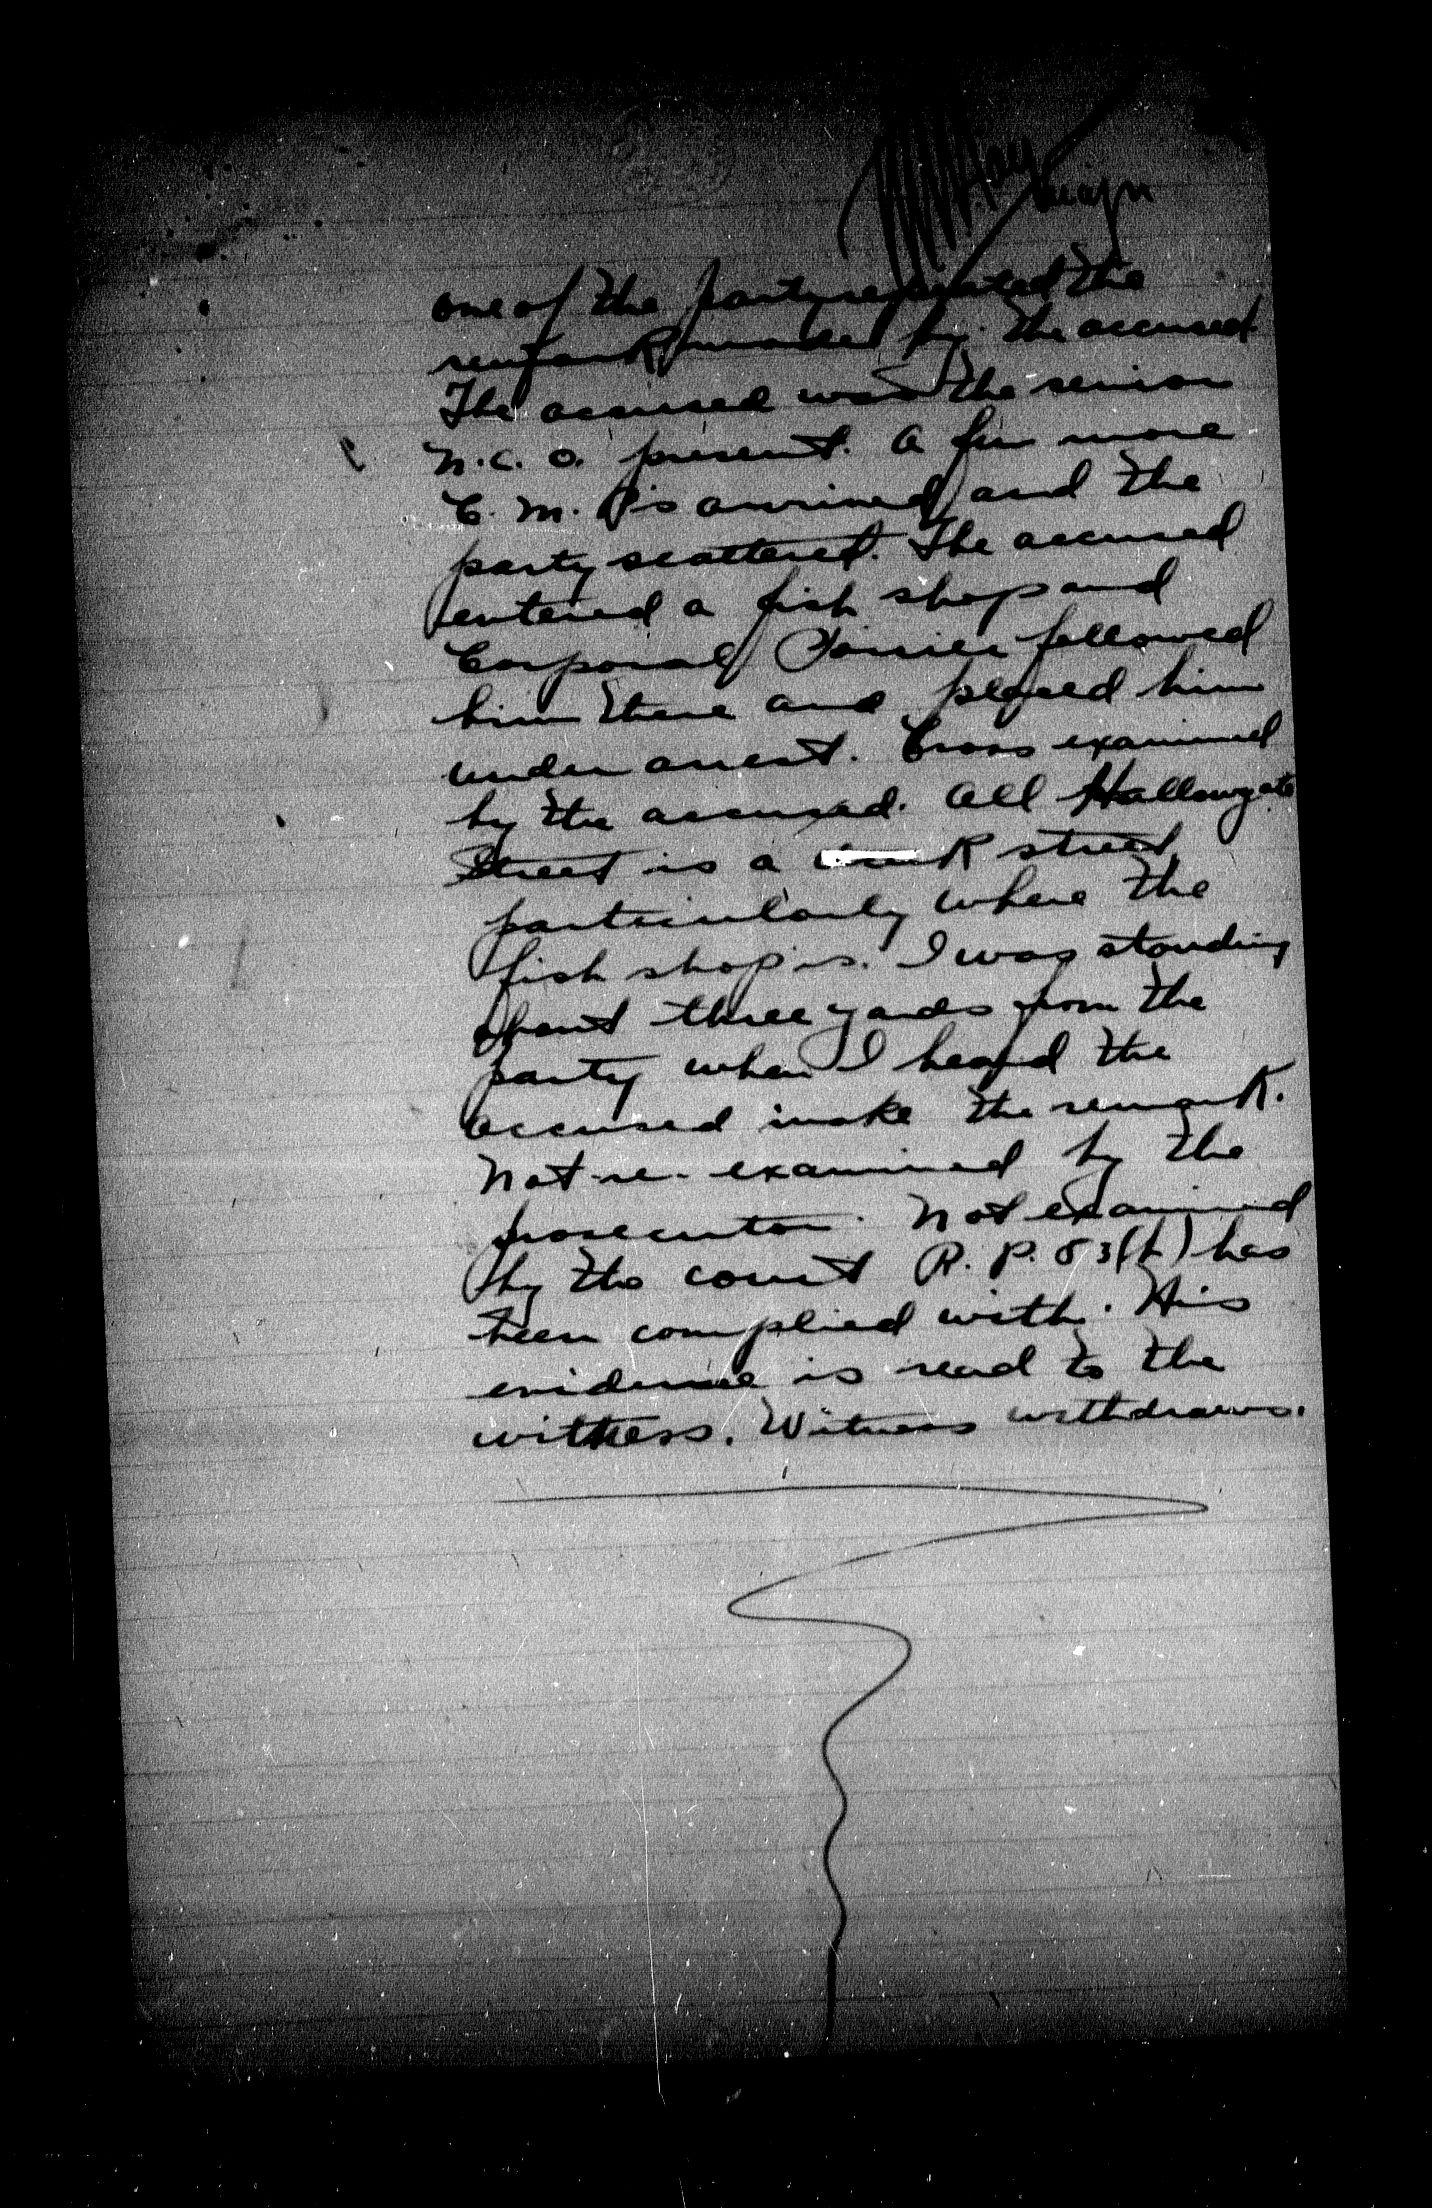 Major
one of the party repeated the
remark made by the accused.
The accused was the senior
N.C.O. present. A few more
C.M.P's arrived and the
party scattered. The accused
entered a fish shop and
Corporal followed
him there and placed him
under arrest. Cross examined
by the accused. All Hallowgate
Street is a dark street
particularly where the
fish shop is. I was standing
about three yards from the
party when I heard the
accused make the remark.
Not re-examined by the
prosecutor. Not examined
by the court R.P. 83(b) has
been complied with. His
evidence is read to the
witness. Witness withdraws.